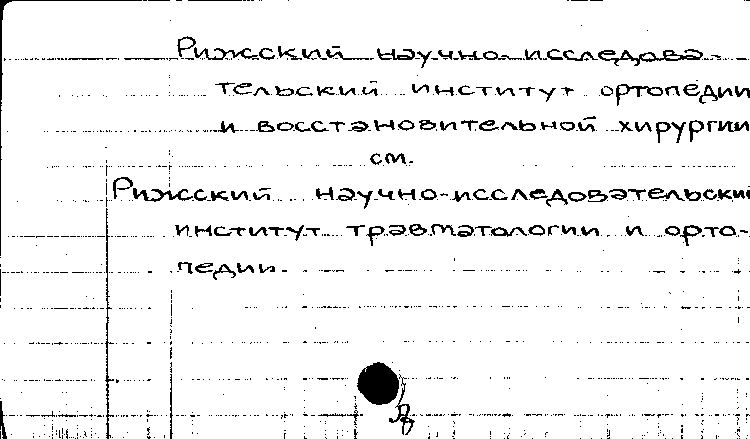 Рижский научно-исследова-
тельский институт ортопедии
и восстановительной хирургии
см.
Рижский научно-исследовательский
институт травматологии и орто-
педии.